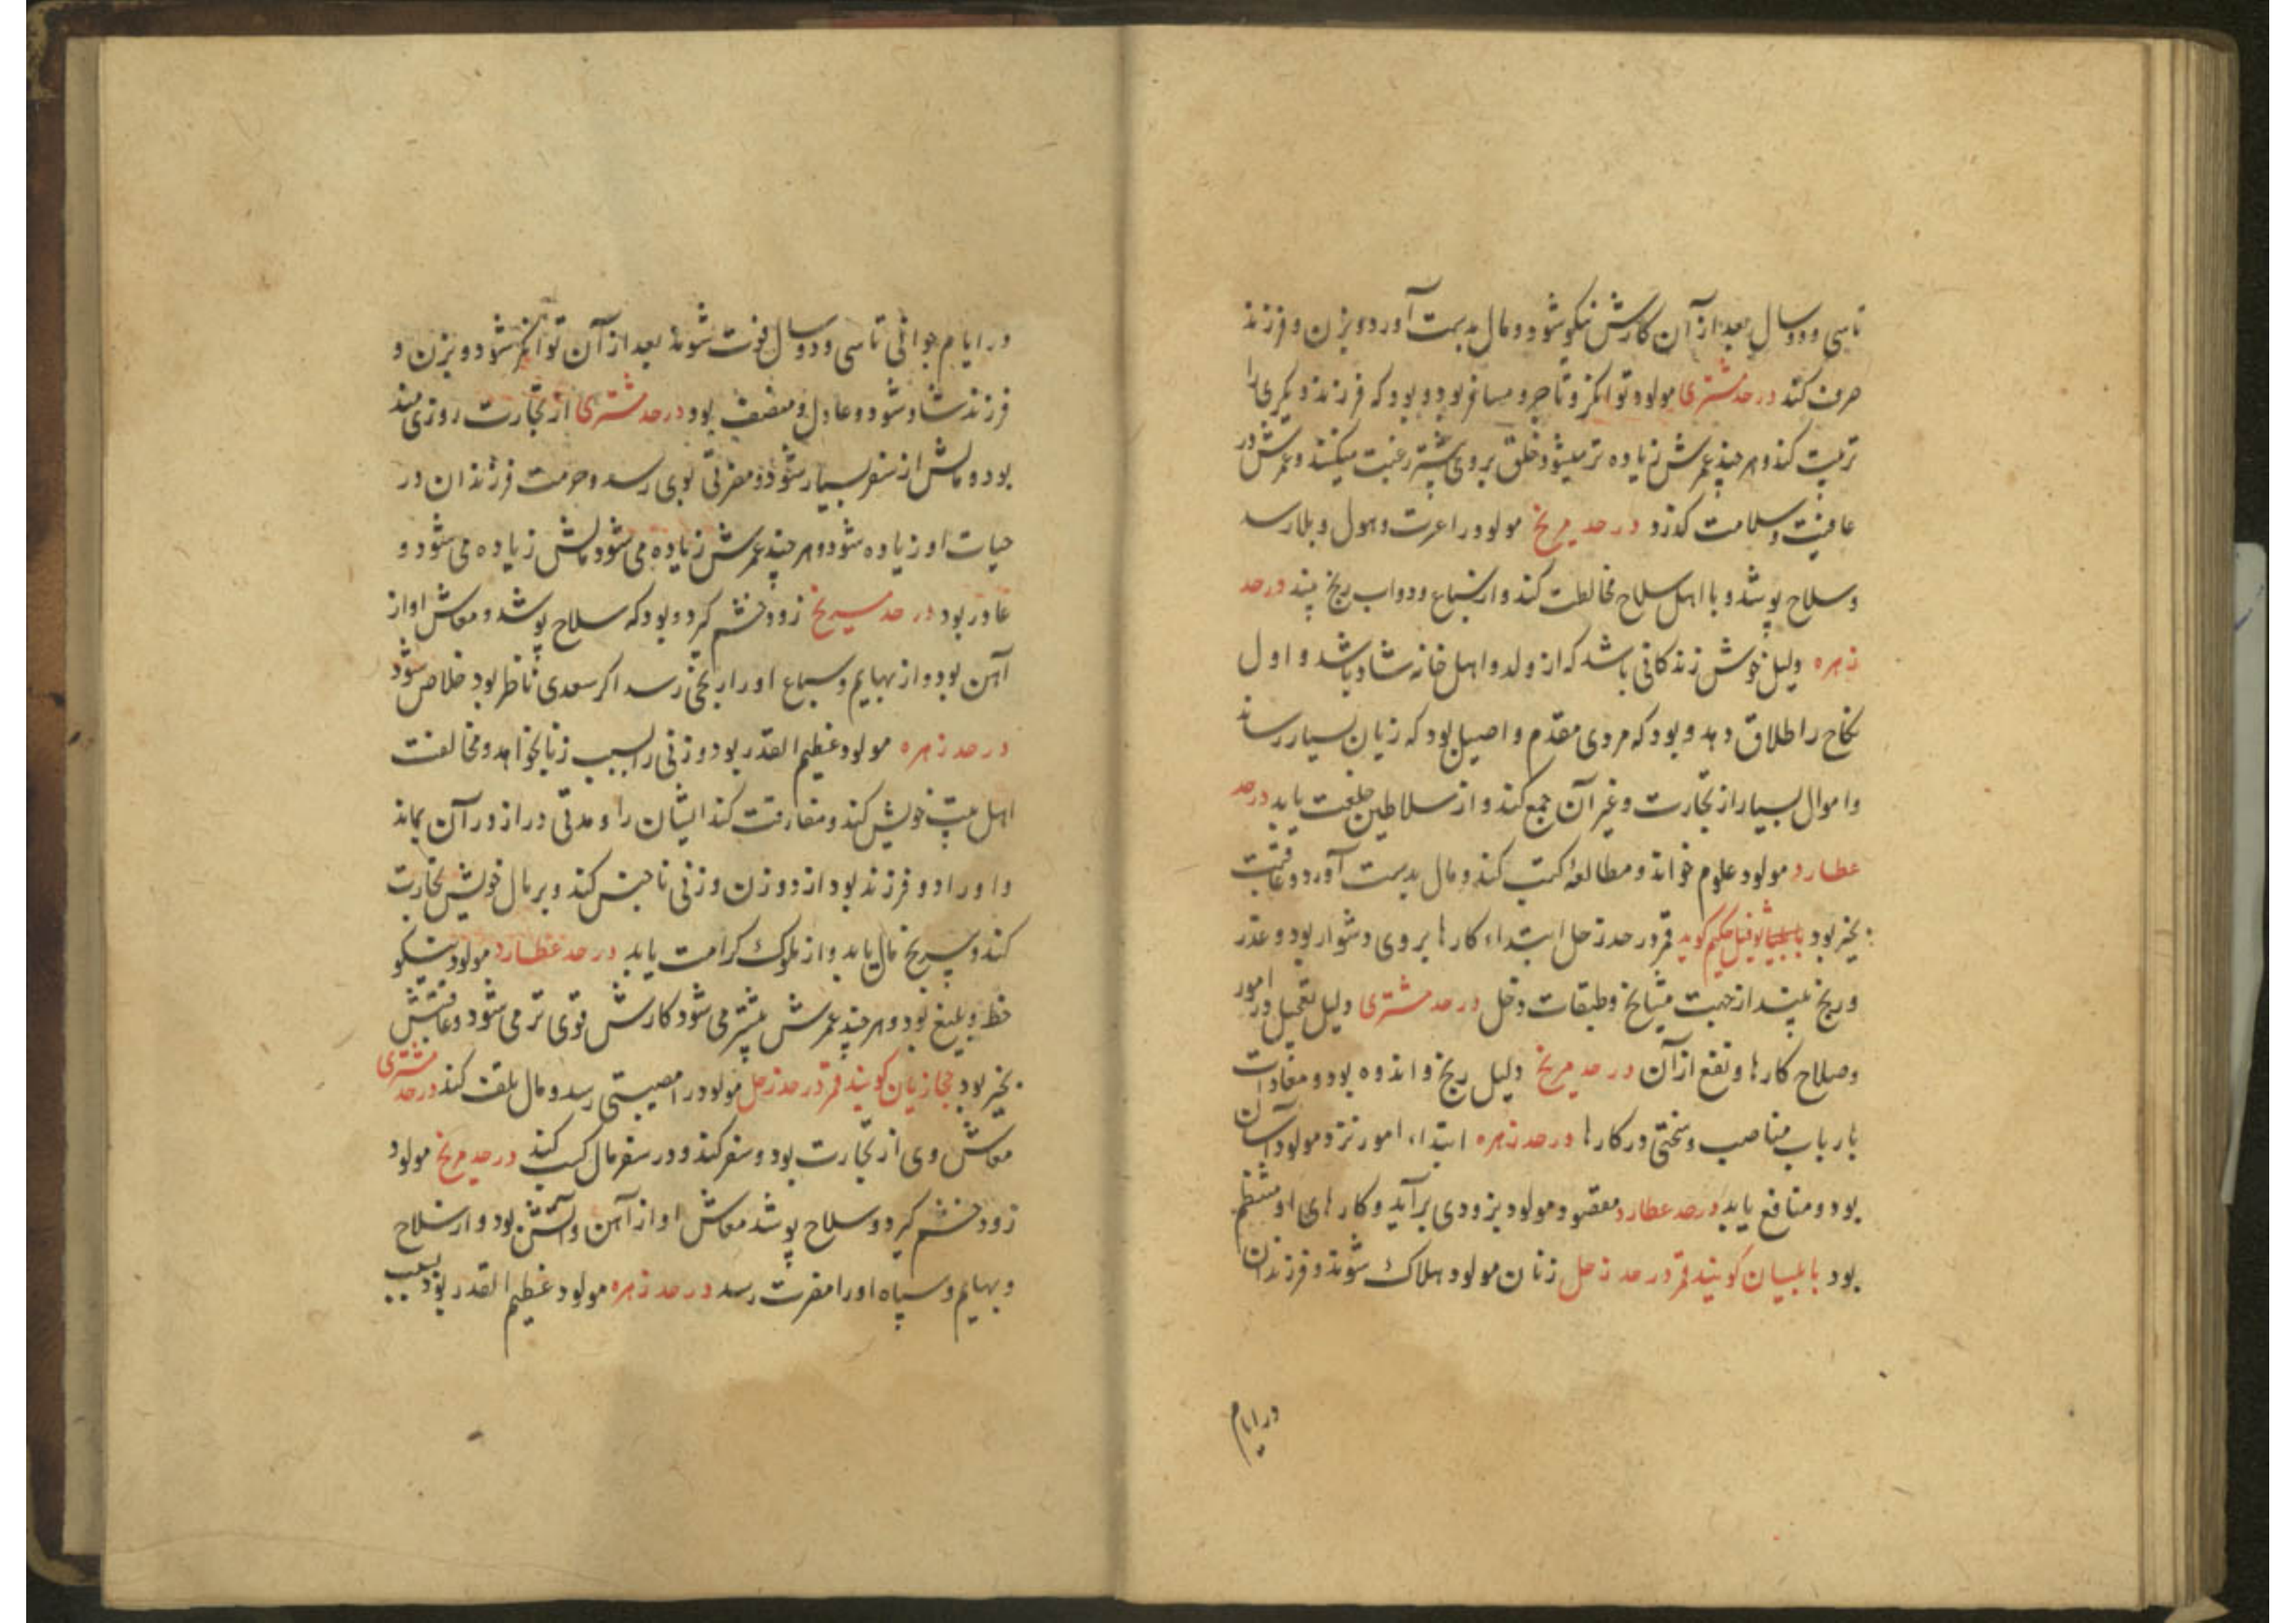 تاسی و دو سال بعد از آن کارش نیکو شود و مال بدست آورد و بزن و فرزند
صرف کند در حد مشتری مولود توانکر و تاجر و مسافر بود و بود که فرزند دیکری را
تربیت کند و هر چند عمرش زیاده تر میشود خلق بر وی بیشتر رغبت میکنند و عمرش در
عافیت و سلامت کذرد در حد مریخ مولود را عزت و هول و بلا رسد
و سلاح پوشد و با اهل سلاح مخالطت کند و از سباع و دواب رنج بیند در حد
زهره دلیل خوش زندکانی باشد که از ولد و اهل خانه شاد باشد و اول
نکاح را طلاق دهد و بود که مردی مقدم و اصیل بود که زیان بسیار رساند
و اموال بسیار از تجارت و غیر آن جمع کند و از سلاطین خلعت یابد در حد
عطارد مولود علوم خواند و مطالعهٔ کتب کند و مال بدست آورد و عاقبت
بخیر بود حکیم کوید قمر در حد زحل ابتداء کارها بر وی دشوار بود و عذر
و رنج بیند از جهت مشایخ و طبقات زحل در حد مشتری دلیل تعجیل در امور
و صلاح کارها و نفع از آن در حد مریخ دلیل رنج و اندوه بود و معادات
بارباب مناصب و سختی در کارها در حد زهره ابتداء امور نزد مولود آسان
بود و منافع یابد در حد عطارد مقصود مولود بزودی برآید و کارهای او منتظم
بود بابلیان کویند قمر در حد زحل زنان مولود هلاک شوند و فرزندان
در ایام
در ایام جوانی تا سی و دو سال فوت شوند بعد از آن توانکر شود و بزن و
فرزند شاد شود و عادل و منصف بود در حد مشتری از تجارت روزی مند
بود و مالش از سفر بسیار شود و مضرتی بوی رسد و حرمت فرزندان در
حیات او زیاده شود و هر چند عمرش زیاده می شود مالش زیاده می شود و
غادر بود در حد مریخ زود خشم کیرد و بود که سلاح پوشد و معاش او از
آهن بود و از بهایم و سباع او را رنجی رسد اکر سعدی ناظر بود خلاص شود
در حد زهره مولود عظیم القدر بود و زنی را بسبب زنا بخواهد و مخالفت
اهل بیت خویش کند و مفارقت کند ایشان را و مدتی دراز در آن بماند
و او را دو فرزند بود از دو زن و زنی ناجنس کند و بر مال خویش تجارت
کند و بی رنج مال یابد و از ملوک کرامت یابد در حد عطارد مولود نیکو
خط و بلیغ بود و هر چند عمرش بیشتر می شود کارش قوی تر می شود و عاقبتش
بخیر بود حجازیان کویند قمر در حد زحل مولود را مصیبتی رسد و مال تلف کند در حد مشتری
معاش وی از تجارت بود و سفر کند و در سفر مال کسب کند در حد مریخ مولود
زود خشم کیرد و سلاح پوشد معاش او از آهن و آتش بود و از سلاح
و بهایم و سپاه او را مضرت رسد در حد زهره مولود عظیم القدر بود بسبب